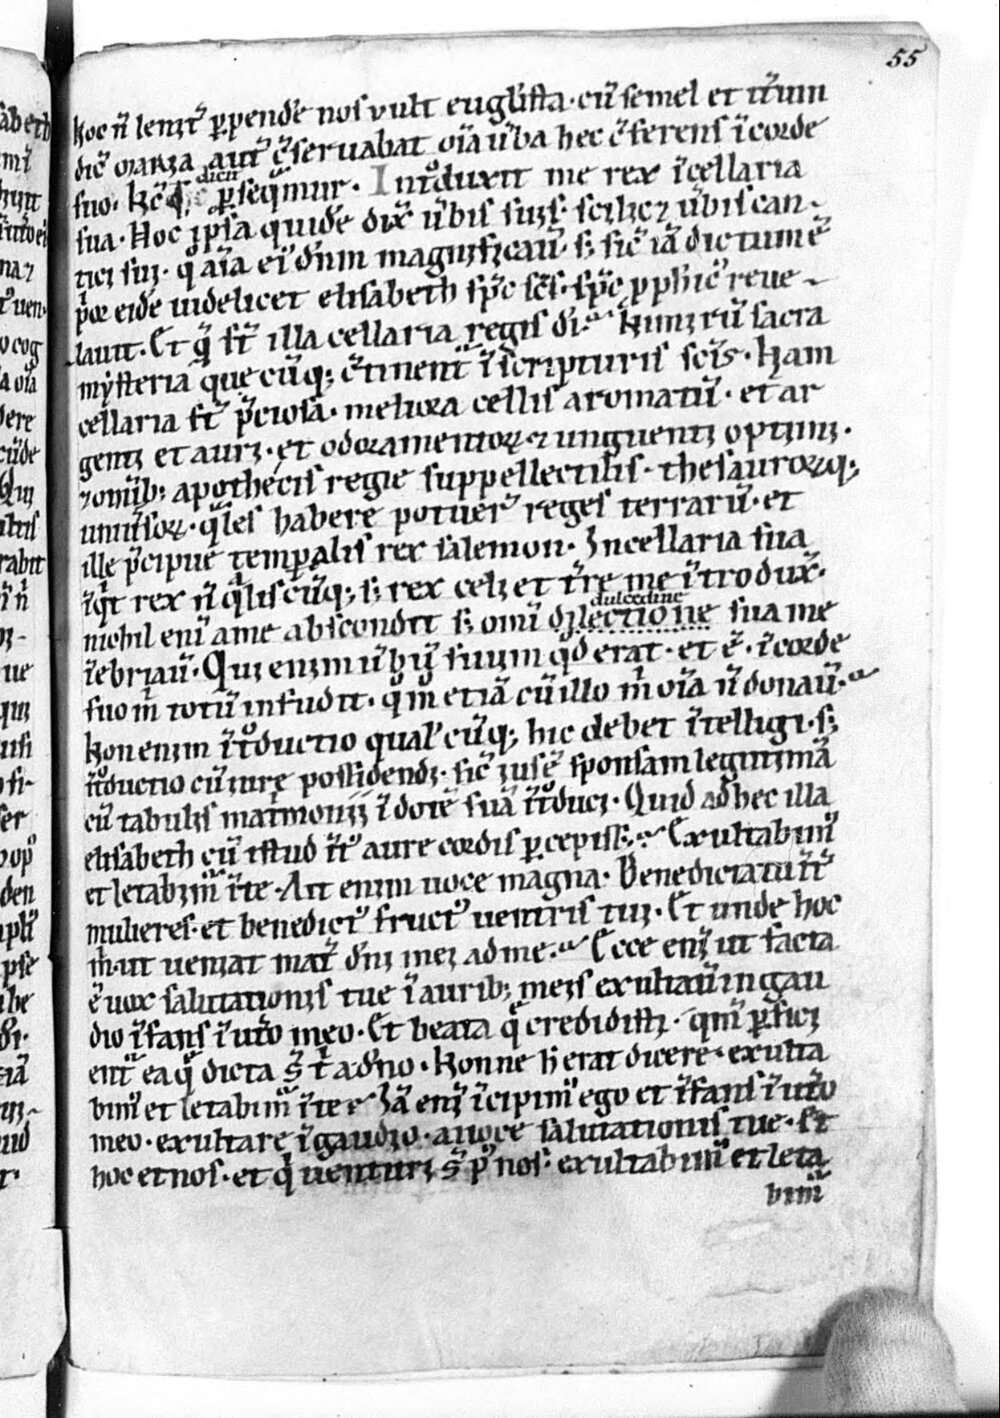 55
hoc ñ lenit᷑ ꝑpende nos vult euglista · cũ semel et it᷑um
dic̃ maria aut̃ ↄ̃seruabat oĩa u̾ba hec ↄ̃ferens ĩ corde
suo · dicit ꝑseq̃mur · Introduxit me rex ĩ cellaria
sua · Hoc ipsa quidẽ dix̃ u̾bis suis · scilicꝫ u̾bis can-
tici sui · q̃ aĩa ei᷒ dñm magnificau̾ · sꝫ sic̃ iã dictum ẽ
p̾or eidẽ uidelicet elisabeth sp̃c sc̃s · sp̃c ꝓph̃ic᷒ reue-
lauit · Et q̃ st̃ illa cellaria regis d̾i · Nimirũ sacra
mysteria que cũqꝫ ↄ̃tinent᷑ ĩ scripturis sc̃is · Nam
cellaria st̃ p̃ciosa · meliora cellis aromatũ · et ar
genti et auri · et odoramentoꝝ ⁊ unguenti optimi ·
⁊ omĩbꝫ apothecis regie suppellectilis · thesauroꝝqꝫ
uniu̾soꝝ · q̃les habere potuer̃ reges terrarũ · et
ille p̃cipue temꝑalis rex salemon · In cellaria sua
ĩqͥt rex ñ q̃liscũqꝫ sꝫ rex celi et t̾re me ĩtrodux̃ ·
nichil eni᷒ a me abscondit sꝫ omĩ dilectione dulcedine sua me
ĩebriau̾ · Qui enim u̾bũ suum qd̾ erat · et ẽ · ĩ corde
suo m̃ totũ infudit · q̃m̃ etiã cũ illo m̃ oĩa ñ donau̾ ·
Non enim ĩtᷣductio qual̾cũqꝫ hic debet ĩtelligi · sꝫ
ĩtᷣductio cũ iure possidendi · sic̃ ius ẽ sponsam legitimã
cũ tabulis mat̾monii ĩ dotẽ suã ĩtᷣduci · Quid ad hec illa
elisabeth cũ istud ĩt᷒ aure cordis ꝑcepissꝫ · Exultabim᷒
et letabim᷒ ĩ te · Ait enim uoce magna · Benedicta tu ĩt᷒
mulieres · et benedict᷒ fruct᷒ uentris tui · Et unde hoc
m̃ · ut ueniat mat̾ dñi mei ad me · Ecce eni᷒ ut facta
ẽ uox salutationis tue ĩ auribꝫ meis exultau̾ in gau
dio ĩfans ĩ ut̾o meo · Et beata q̃ credidisti · qm̃ ꝑfici
ent᷑ ea q̃ dicta st̃ t̾ a dño · Nonne h̾ erat dicere · exulta
bim᷒ et letabim᷒ ĩ te · Iã eni᷒ ĩcipim᷒ ego et ĩfans ĩ ut̾o
meo · exultare ĩ gaudio · a uoce salutationis tue · Et
hoc et nos · et q̃ uenturi st̃ p᷒ nos · exultabim᷒ et leta
bim᷒